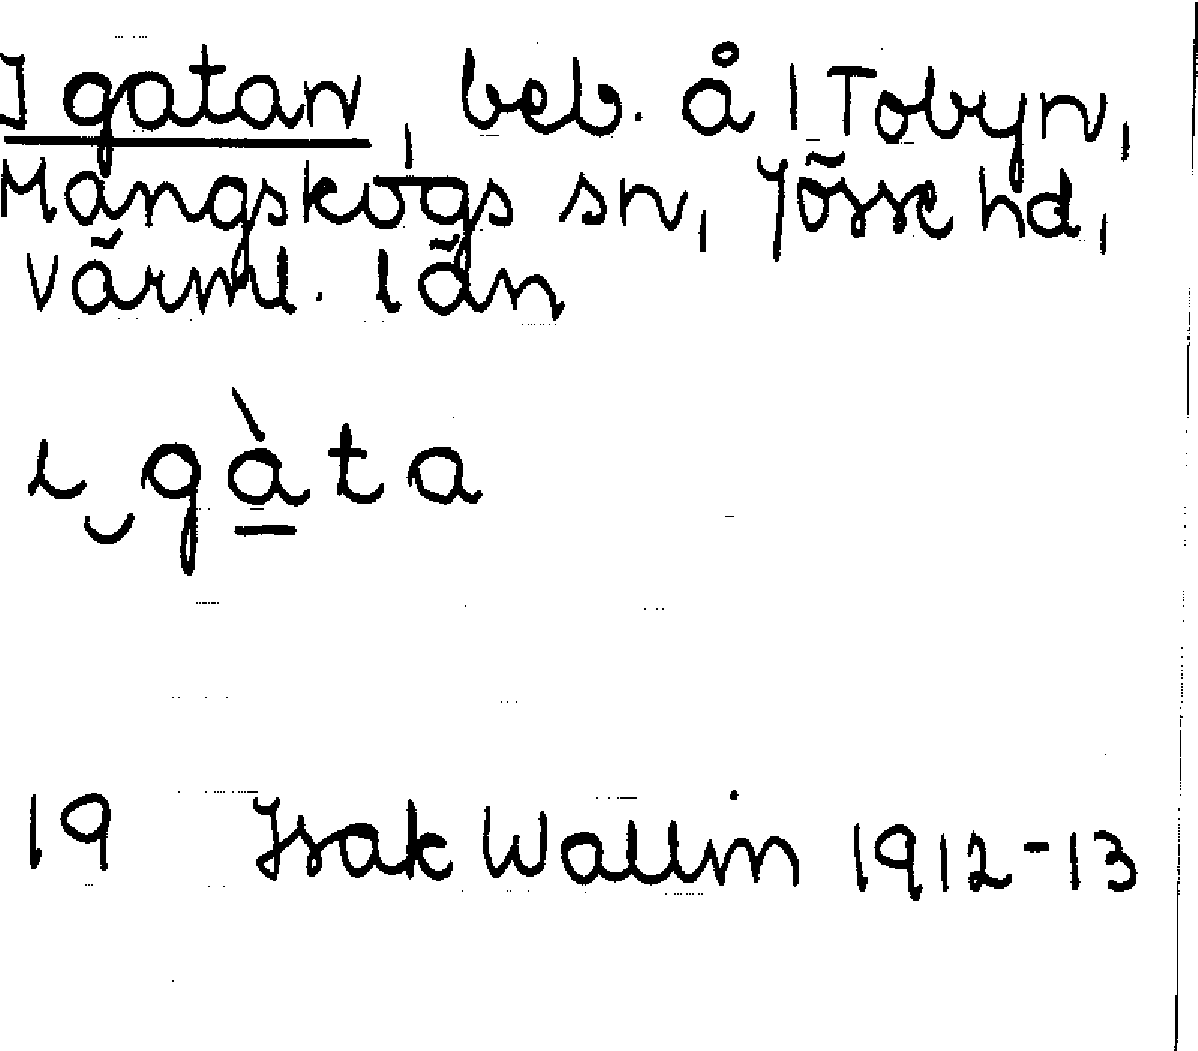 I gatan, beb. å 1 Tobyn,
Mangskogs sn, Jösse hd,
Värml. län
i‿gàta
19 Isak Wallin 1912-13